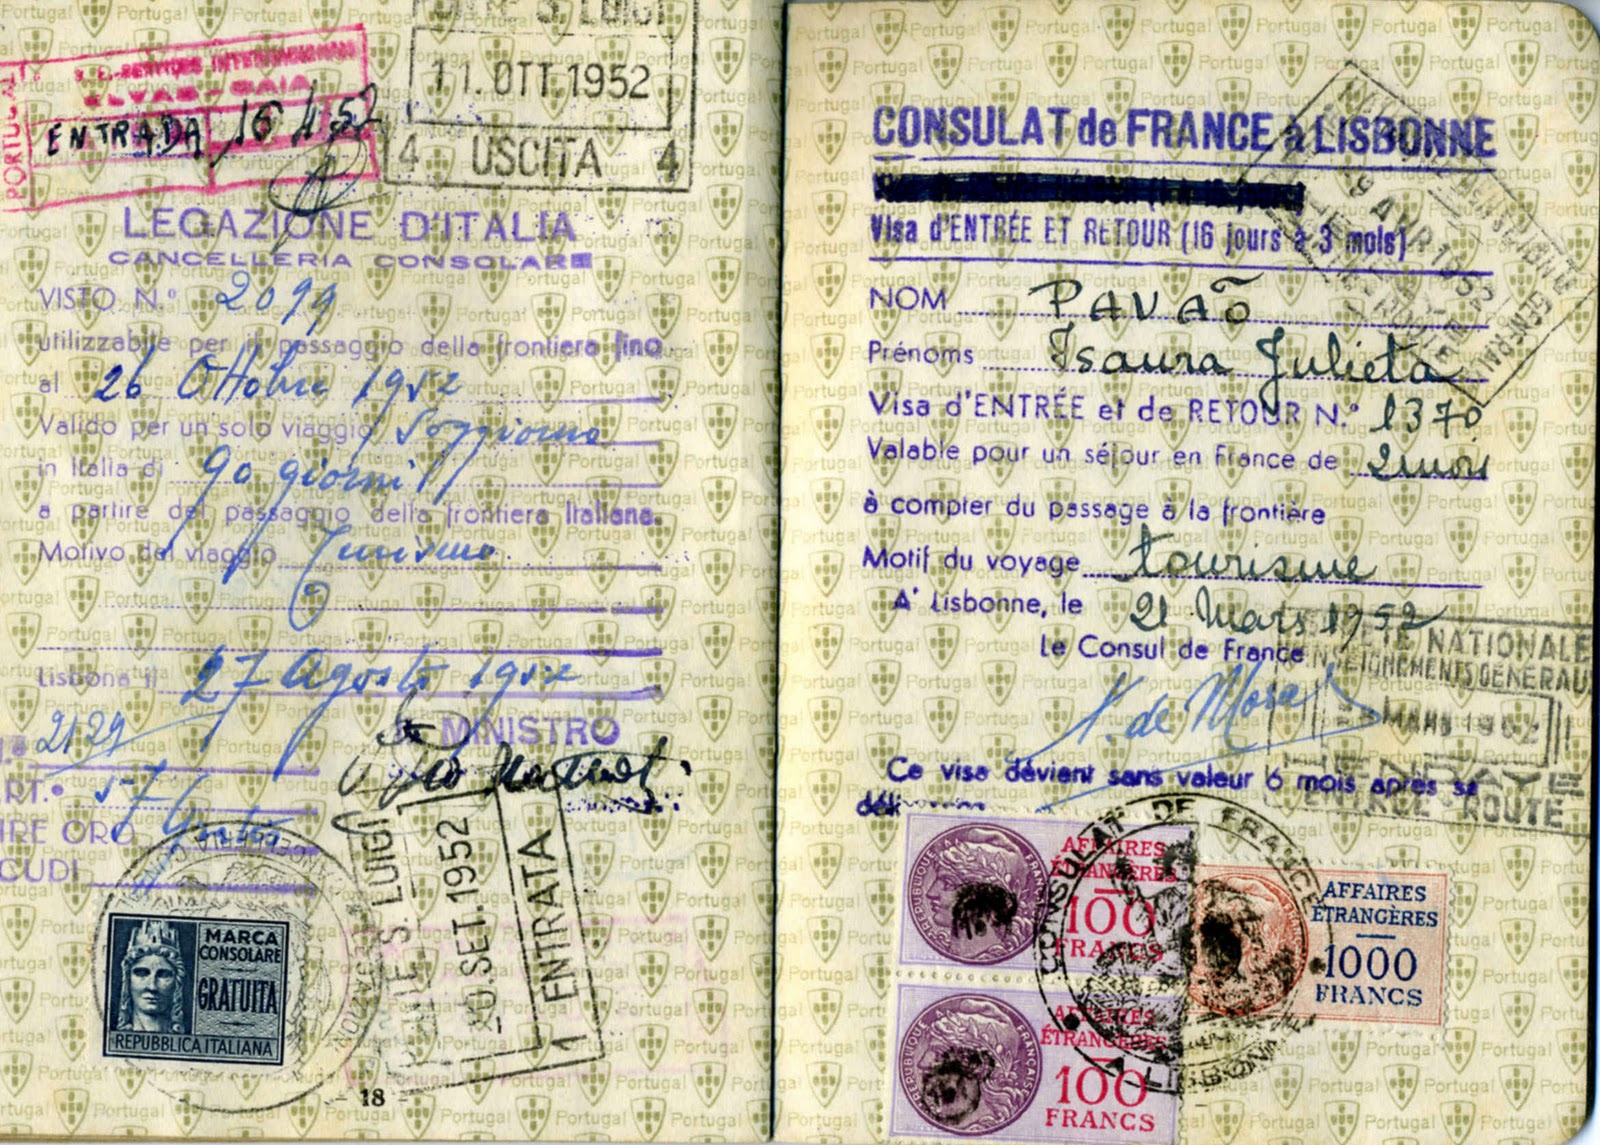 PORTUGAL
ELVAS - CAIA
ENTRADA 16 4 52
S. LUIGI
11. OTT. 1952
4 USCITA 4
LEGAZIONE D'ITALIA
CANCELLERIA CONSOLARE
VISTO N.º 2099
utilizzabile per il passaggio della frontiera fino
al 26 Ottobre 1952
Valido per un solo viaggio Soggiorno
in Italia di 90 giorni
a partire del passaggio della frontiera Italiana.
Motivo del viaggio Turismo
Lisbona li 27 Agosto 1952
MINISTRO
2129
ART.º 57
LIRE ORO Gratis
SCUDI
MARCA
CONSOLARE
GRATUITA
REPUBBLICA ITALIANA
PONTE S. LUIGI
20. SET. 1952
1 ENTRATA
18
CONSULAT de FRANCE à LISBONNE
Visa d'ENTRÉE ET RETOUR (16 jours à 3 mois)
NOM PAVAÕ
Prénoms Isaura Julieta
Visa d'ENTRÉE et de RETOUR N.º 1370
Valable pour un séjour en France de 2 mois
à compter du passage à la frontière
Motif du voyage tourisme
A' Lisbonne, le 21 Mars 1952
Le Consul de France
Ce visa dévient sans valeur 6 mois apres sa
9 AVR 1952
SURETE NATIONALE
RENSEIGNEMENTS GÉNÉRAUX
MARS 1952
HENDAYE
ENTRÉE - ROUTE
CONSULAT DE FRANCE
LISBONNE
RÉPUBLIQUE FRANÇAISE
AFFAIRES
ÉTRANGÈRES
100
FRANCS
AFFAIRES
ÉTRANGÈRES
1000
FRANCS
RÉPUBLIQUE FRANÇAISE
AFFAIRES
ÉTRANGÈRES
100
FRANCS